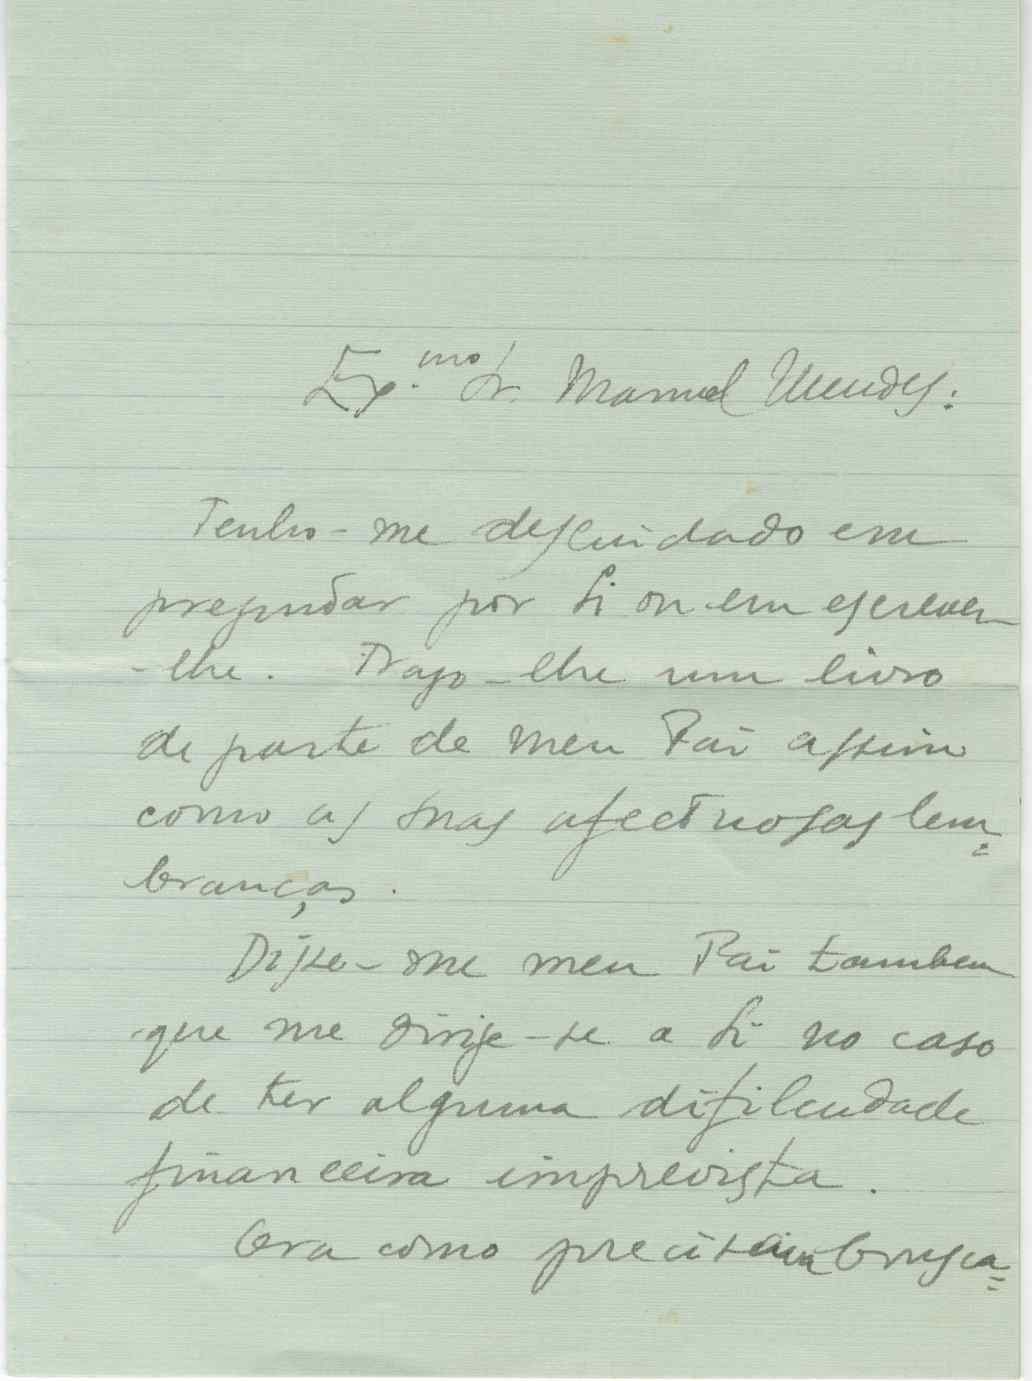 Ex.mo Sr. Manuel Mendes:
Tenho-me descuidado em
preguntar por Si ou em escrever-
-lhe. Trago-lhe um livro
de parte de meu Pai assim
como as suas afectuosas lem=
branças.
Disse-me meu Pai tambem
que me dirige-se a Si no caso
de ter alguma dificuldade
financeira imprevista.
Ora como precisam brusca=